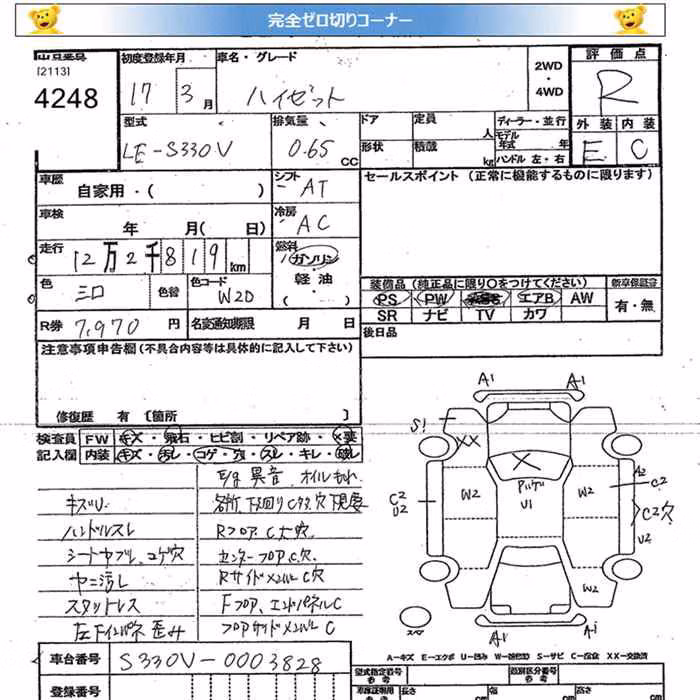 完全ゼロ切りコーナー
出品番号 初度登録年月 車名・グレード 2WD ・ 4WD 評価点
[2113]
4248 17 3月 ハイゼット R
型式 排気量 ドア 定員 人 ディーラー・並行 外装 内装
LE-S330V 0.65 CC 形状 積載 kg モデル年式 年 ハンドル 左・右 E C
車歴 自家用・( ) シフト AT セールスポイント (正常に機能するものに限ります)
車検 年 月( 日) 冷房 AC
走行 12万2千819km 燃料 ガソリン
軽油
・( )
色 シロ 色替 色コード W20 装備品(純正品に限り○をつけてください) 新車保証書
PS PW エアB AW 有・無
SR ナビ TV カワ
R券 7,970円 名変通知期限 月 日 後日品
注意事項申告欄(不具合内容等は具体的に記入して下さい)
修復歴 有 〔箇所 〕
検査員 FW キズ・飛石・ヒビ割・リペア跡・×要
記入欄 内装 キズ・汚レ・コゲ・穴・スレ・キレ・破レ
E/g 異音 オイルもれ
キズU 各所下回りCサス穴現要
ハンドルスレ RフロアC大穴
シートヤブレ コゲ穴 センターフロアC穴
ヤニ汚レ RサイドメンバーC穴
スタットレス Fフロア、エンドパネルC
左Fインパネ歪み フロアサイドメンバーC
A1 A1
S1
XX
X
W2 U1 W2
C2
U2
A2
C2
C2穴
U2
W2
スペア
A1 A1
A-キズ E-エクボ U-凹み W-補修跡 S-サビ C-腐食 XX-交換済
車台番号 S330V-0003828
登録番号
型式指定番号 参考 類別区分番号 参考
長さ cm 幅 cm 高さ cm